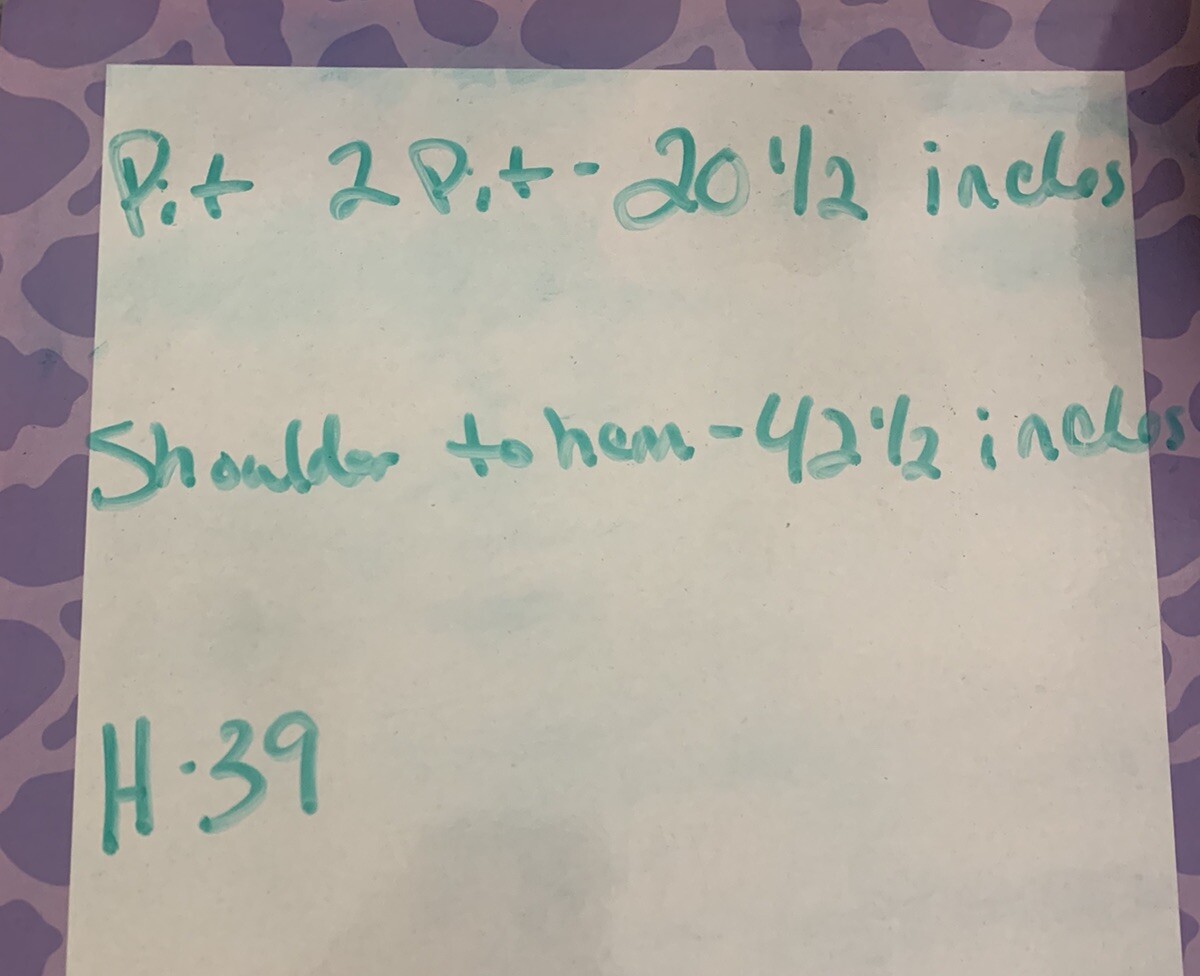 Pit 2 Pit - 20 1/2 inches
Shoulder to hem - 42 1/2 inches
H-39